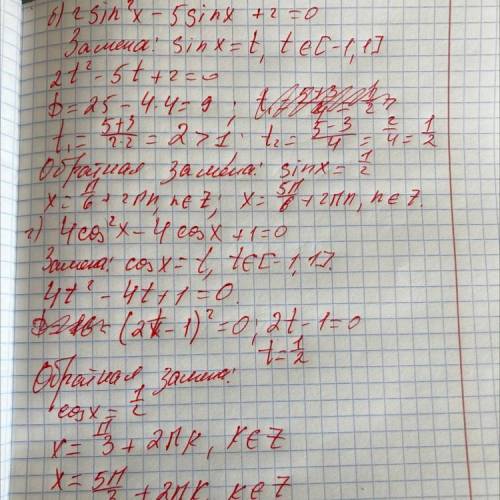 б) 2sin²x - 5sinx + 2 = 0
Замена: sinx = t, t ∈ [-1, 1]
2t² - 5t + 2 = 0
D = 25 - 4·4 = 9 ;
t₁ = (5+3)/(2·2) = 2 > 1 ; t₂ = (5-3)/4 = 2/4 = 1/2
Обратная замена: sinx = 1/2
x = π/6 + 2πn, n ∈ Z ; x = 5π/6 + 2πn, n ∈ Z.
г) 4cos²x - 4cosx + 1 = 0
Замена: cosx = t, t ∈ [-1, 1].
4t² - 4t + 1 = 0.
(2t - 1)² = 0 ; 2t - 1 = 0
t = 1/2
Обратная замена:
cosx = 1/2
x = π/3 + 2πk, k ∈ Z
x = 5π/3 + 2πk, k ∈ Z